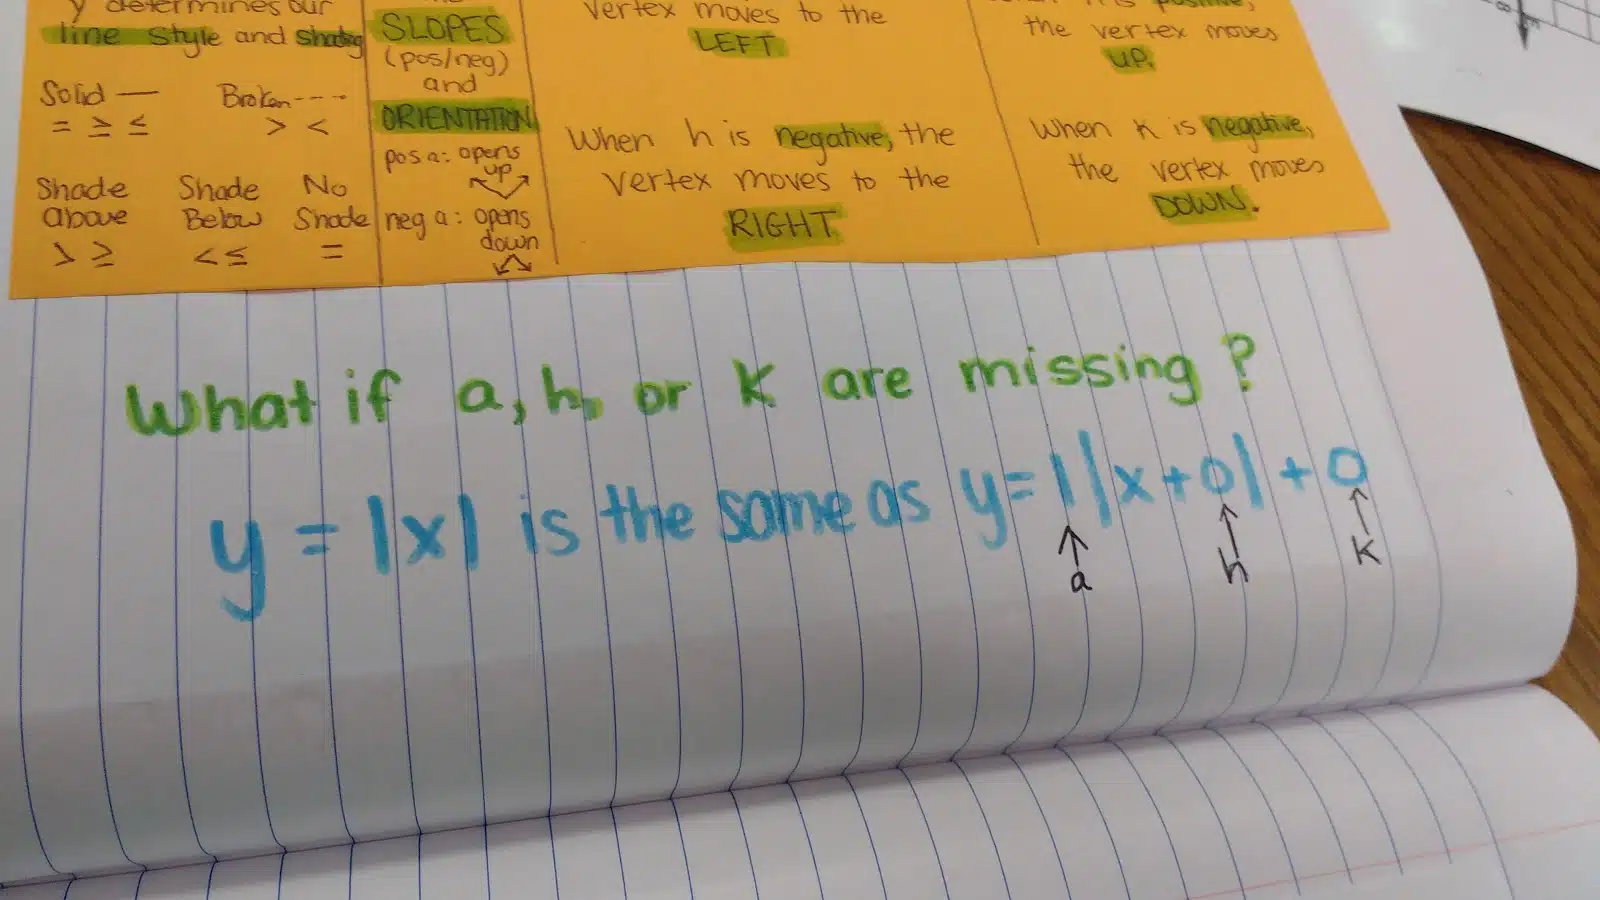 y determines our
line style and shading
Solid — Broken ---
= ≥ ≤ > <
Shade Shade No
above Below Shade
> ≥ < ≤ =
SLOPES
(pos/neg)
and
ORIENTATION
pos a: opens
up
neg a: opens
down
vertex moves to the
LEFT
When h is negative, the
vertex moves to the
RIGHT
positive,
the vertex moves
UP.
When k is negative,
the vertex moves
DOWN.
What if a, h, or k are missing?
y = |x| is the same as y = 1|x + 0| + 0
a h k